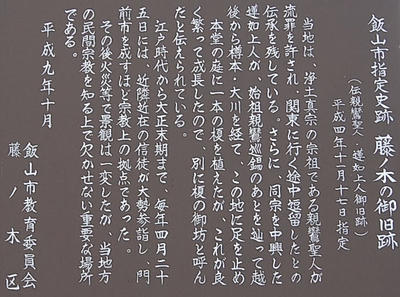 飯山市指定史跡 藤ノ木の御旧跡
(伝親鸞聖人・蓮如上人御旧跡)
平成四年十一月十七日指定
当地は、浄土真宗の宗祖である親鸞聖人が
流罪を許され、関東に行く途中逗留したとの
伝承を残している。さらに、同宗を中興した
蓮如上人が、始祖親鸞巡錫のあとを辿って越
後から樽本・大川を経て、この地に足を止め
本堂の庭に一本の榎を植えたが、これが良
く繁って成長したので、別に榎の御坊と呼ん
だと伝えられている。
江戸時代から大正末期まで、毎年四月二十
五日には、近隣近在の信徒が大勢参詣し、門
前市を なすほど宗教上の拠点であった。
その後火災等で景観は一変したが、当地方
の民間宗教を知る上で欠かせない重要な場所
である。
平成九年十月
飯山市教育委員会
藤ノ木区